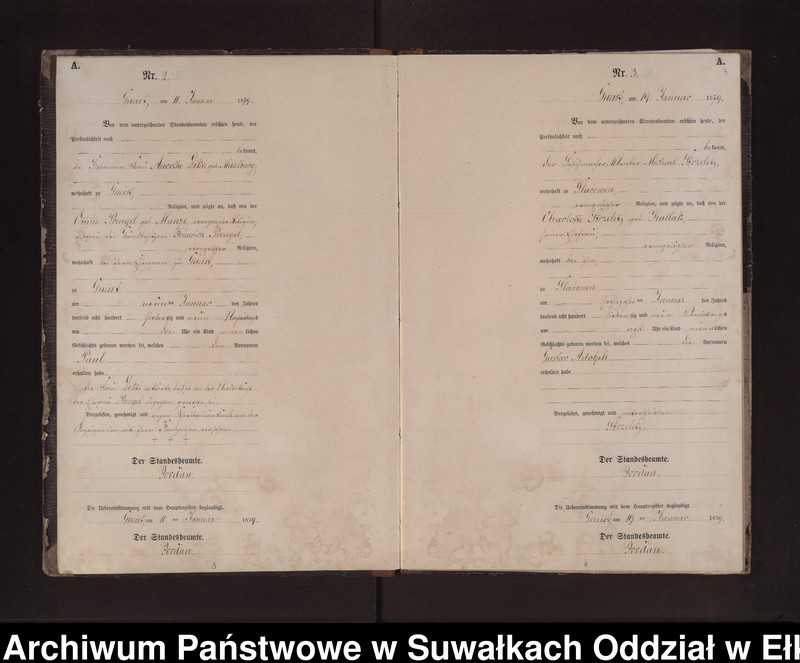 A.
Nr. 2.
Gneist, am 11. Januar 1879.
Vor dem unterzeichneten Standesbeamten erschien heute, der
Persönlichkeit nach
bekannt,
die Hebamme Frau Aurelie
wohnhaft zu Gneist,
Religion, und zeigte an, daß von der
Ottilie Bengel geb. evangelischer Religion,
Ehefrau des Friedrich Bengel,
evangelischer Religion,
wohnhaft bei ihrem Ehemann zu Gneist,
zu Gneist
am neunten Januar des Jahres
tausend acht hundert siebenzig und neun Nachmittags
um drei Uhr ein Kind männlichen
Geschlechts geboren worden sei, welches den Vornamen
Paul
erhalten habe.
Die Frau erklärte, daß sie bei der Niederkunft
der Ehefrau Bengel zugegen gewesen sei.
Vorgelesen, genehmigt und wegen Schreibensunkunde von der
Anzeigenden mit ihrem Handzeichen versehen
+ + +
Der Standesbeamte.
Jordan.
Die Uebereinstimmung mit dem Hauptregister beglaubigt.
Gneist, am 11 ten Januar 1879.
Der Standesbeamte.
Jordan.
3
A.
3
Nr. 3.
Gneist, am 19. Januar 1879.
Vor dem unterzeichneten Standesbeamten erschien heute, der
Persönlichkeit nach
bekannt,
der Michael
wohnhaft zu Glabowen,
evangelischer Religion, und zeigte an, daß von der
Charlotte geb.
seiner Ehefrau,
evangelischer Religion,
wohnhaft bei ihm,
zu Glabowen
am ten Januar des Jahres
tausend acht hundert siebenzig und neun Vormittags
um Uhr ein Kind männlichen
Geschlechts geboren worden sei, welches die Vornamen
Gustav Adolph
erhalten habe.
Vorgelesen, genehmigt und unterschrieben
Der Standesbeamte.
Jordan.
Die Uebereinstimmung mit dem Hauptregister beglaubigt.
Gneist, am 19 ten Januar 1879.
Der Standesbeamte.
Jordan.
4
Archiwum Państwowe w Suwałkach Oddział w Ełk